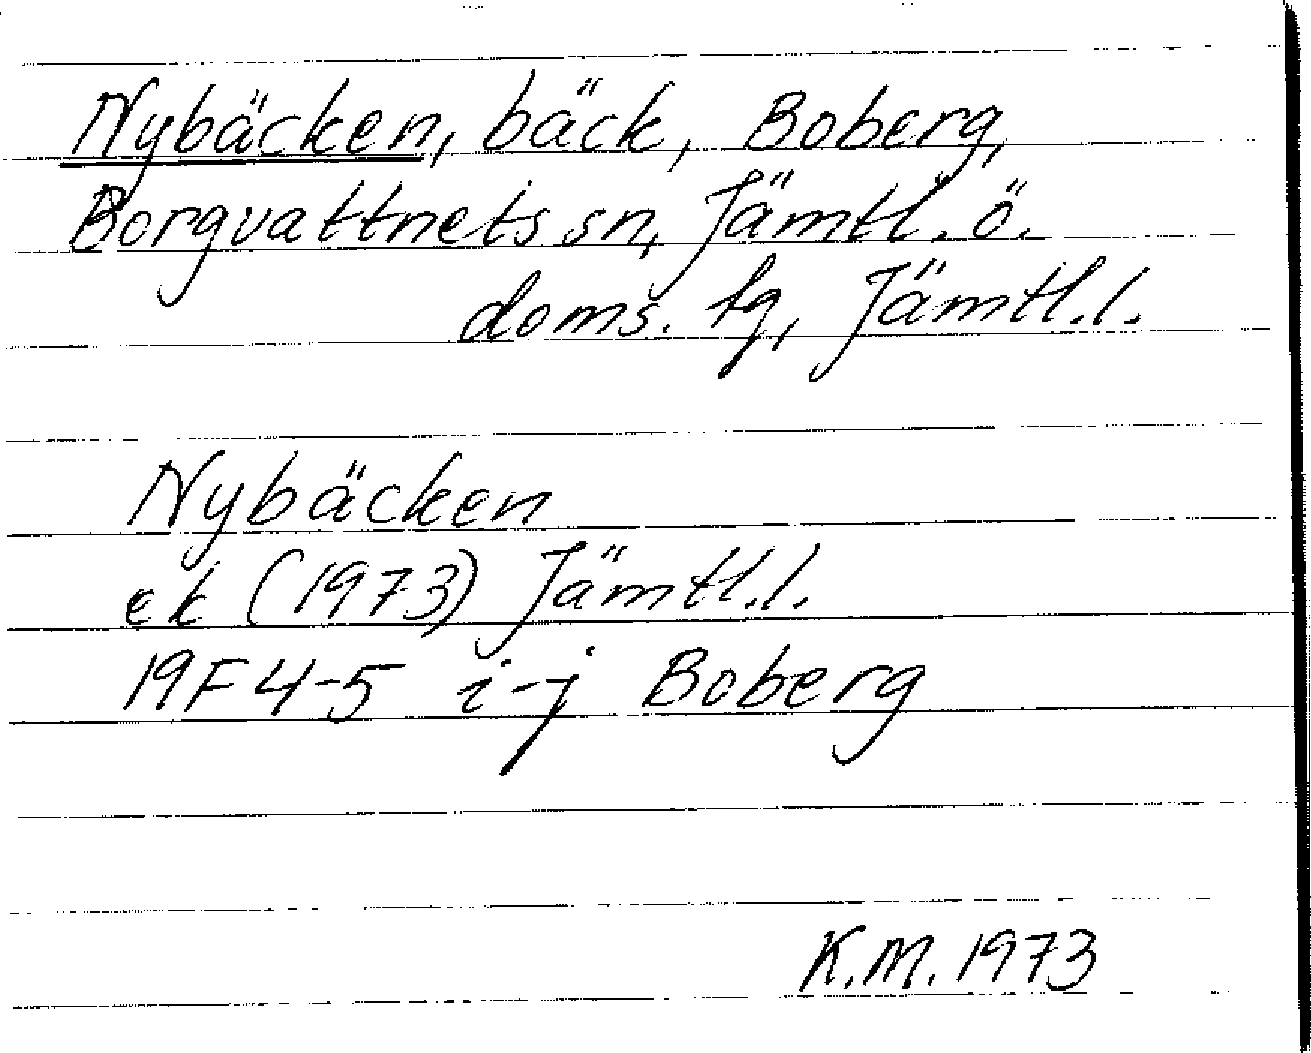 Nybäcken, bäck, Boberg,
Borgvattnets sn, Jämtl. ö.
doms. tg, Jämtl.l.
Nybäcken
ek (1973) Jämtl.l.
19F 4-5 i-j Boberg
K.M. 1973